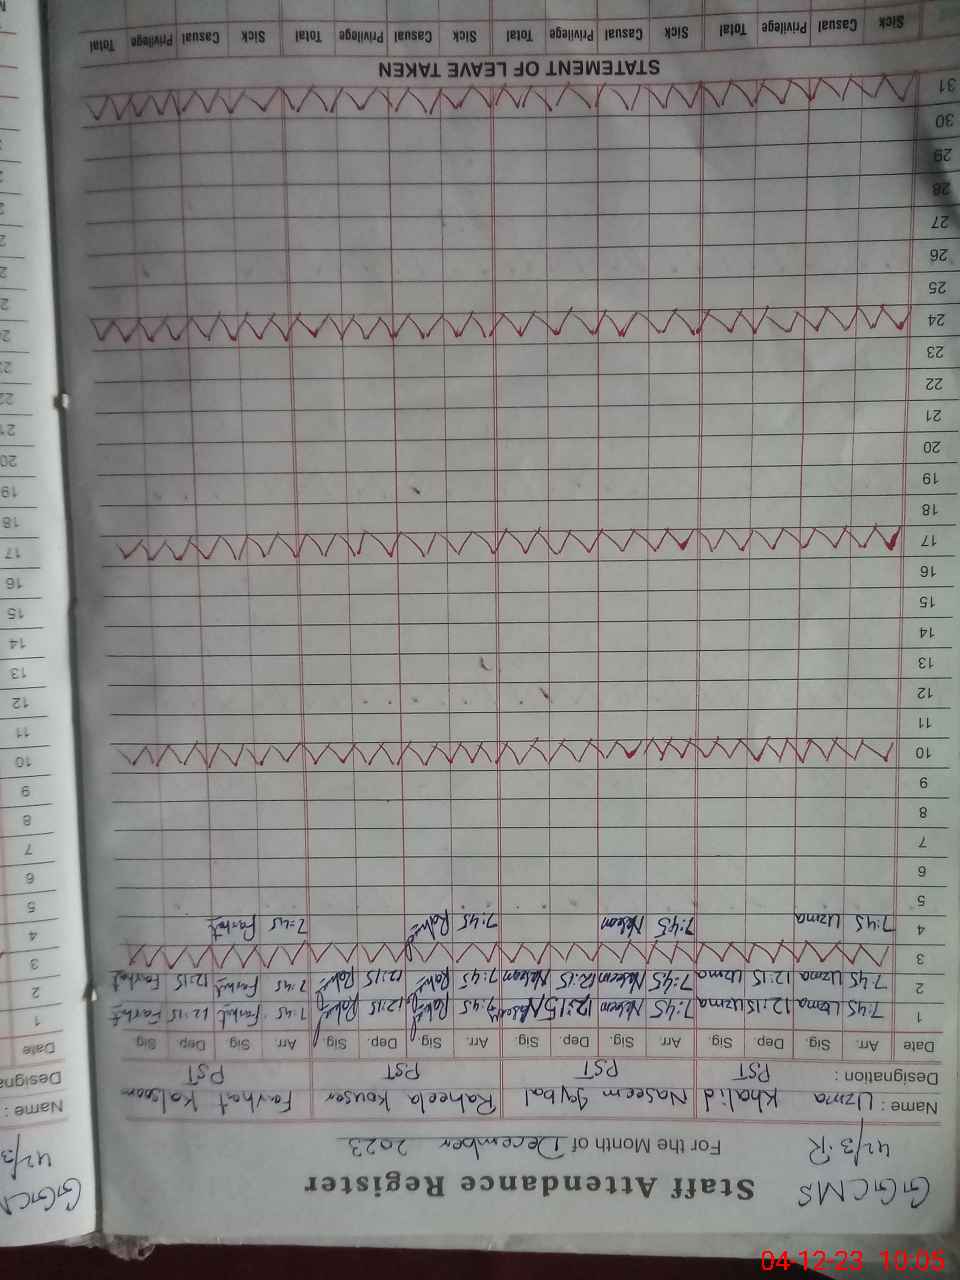 GGCMS Staff Attendance Register
42/3.R For the Month of December 2023
Name : Uzma Khalid Naseem Iqbal Raheela Kouser Farhat Kalsoom
Designation : PST PST PST PST
Date Arr. Sig. Dep. Sig. Arr. Sig. Dep. Sig. Arr. Sig. Dep. Sig. Arr. Sig. Dep. Sig.
1 7:45 Uzma 12:15 Uzma 7:45 12:15 7:45 12:15 7:45 Farhat 12:15 Farhat
2 7:45 Uzma 12:15 Uzma 7:45 12:15 7:45 12:15 7:45 Farhat 12:15 Farhat
3
4 7:45 Uzma 7:45 7:45 7:45 Farhat
5
6
7
8
9
10
11
12
13
14
15
16
17
18
19
20
21
22
23
24
25
26
27
28
29
30
31
STATEMENT OF LEAVE TAKEN
Sick Casual Privilege Total Sick Casual Privilege Total Sick Casual Privilege Total Sick Casual Privilege Total
GGCM
42/3
Name :
Designa
Date
1
2
3
4
5
6
7
8
9
10
11
12
13
14
15
16
17
18
19
20
04-12-23 10:05